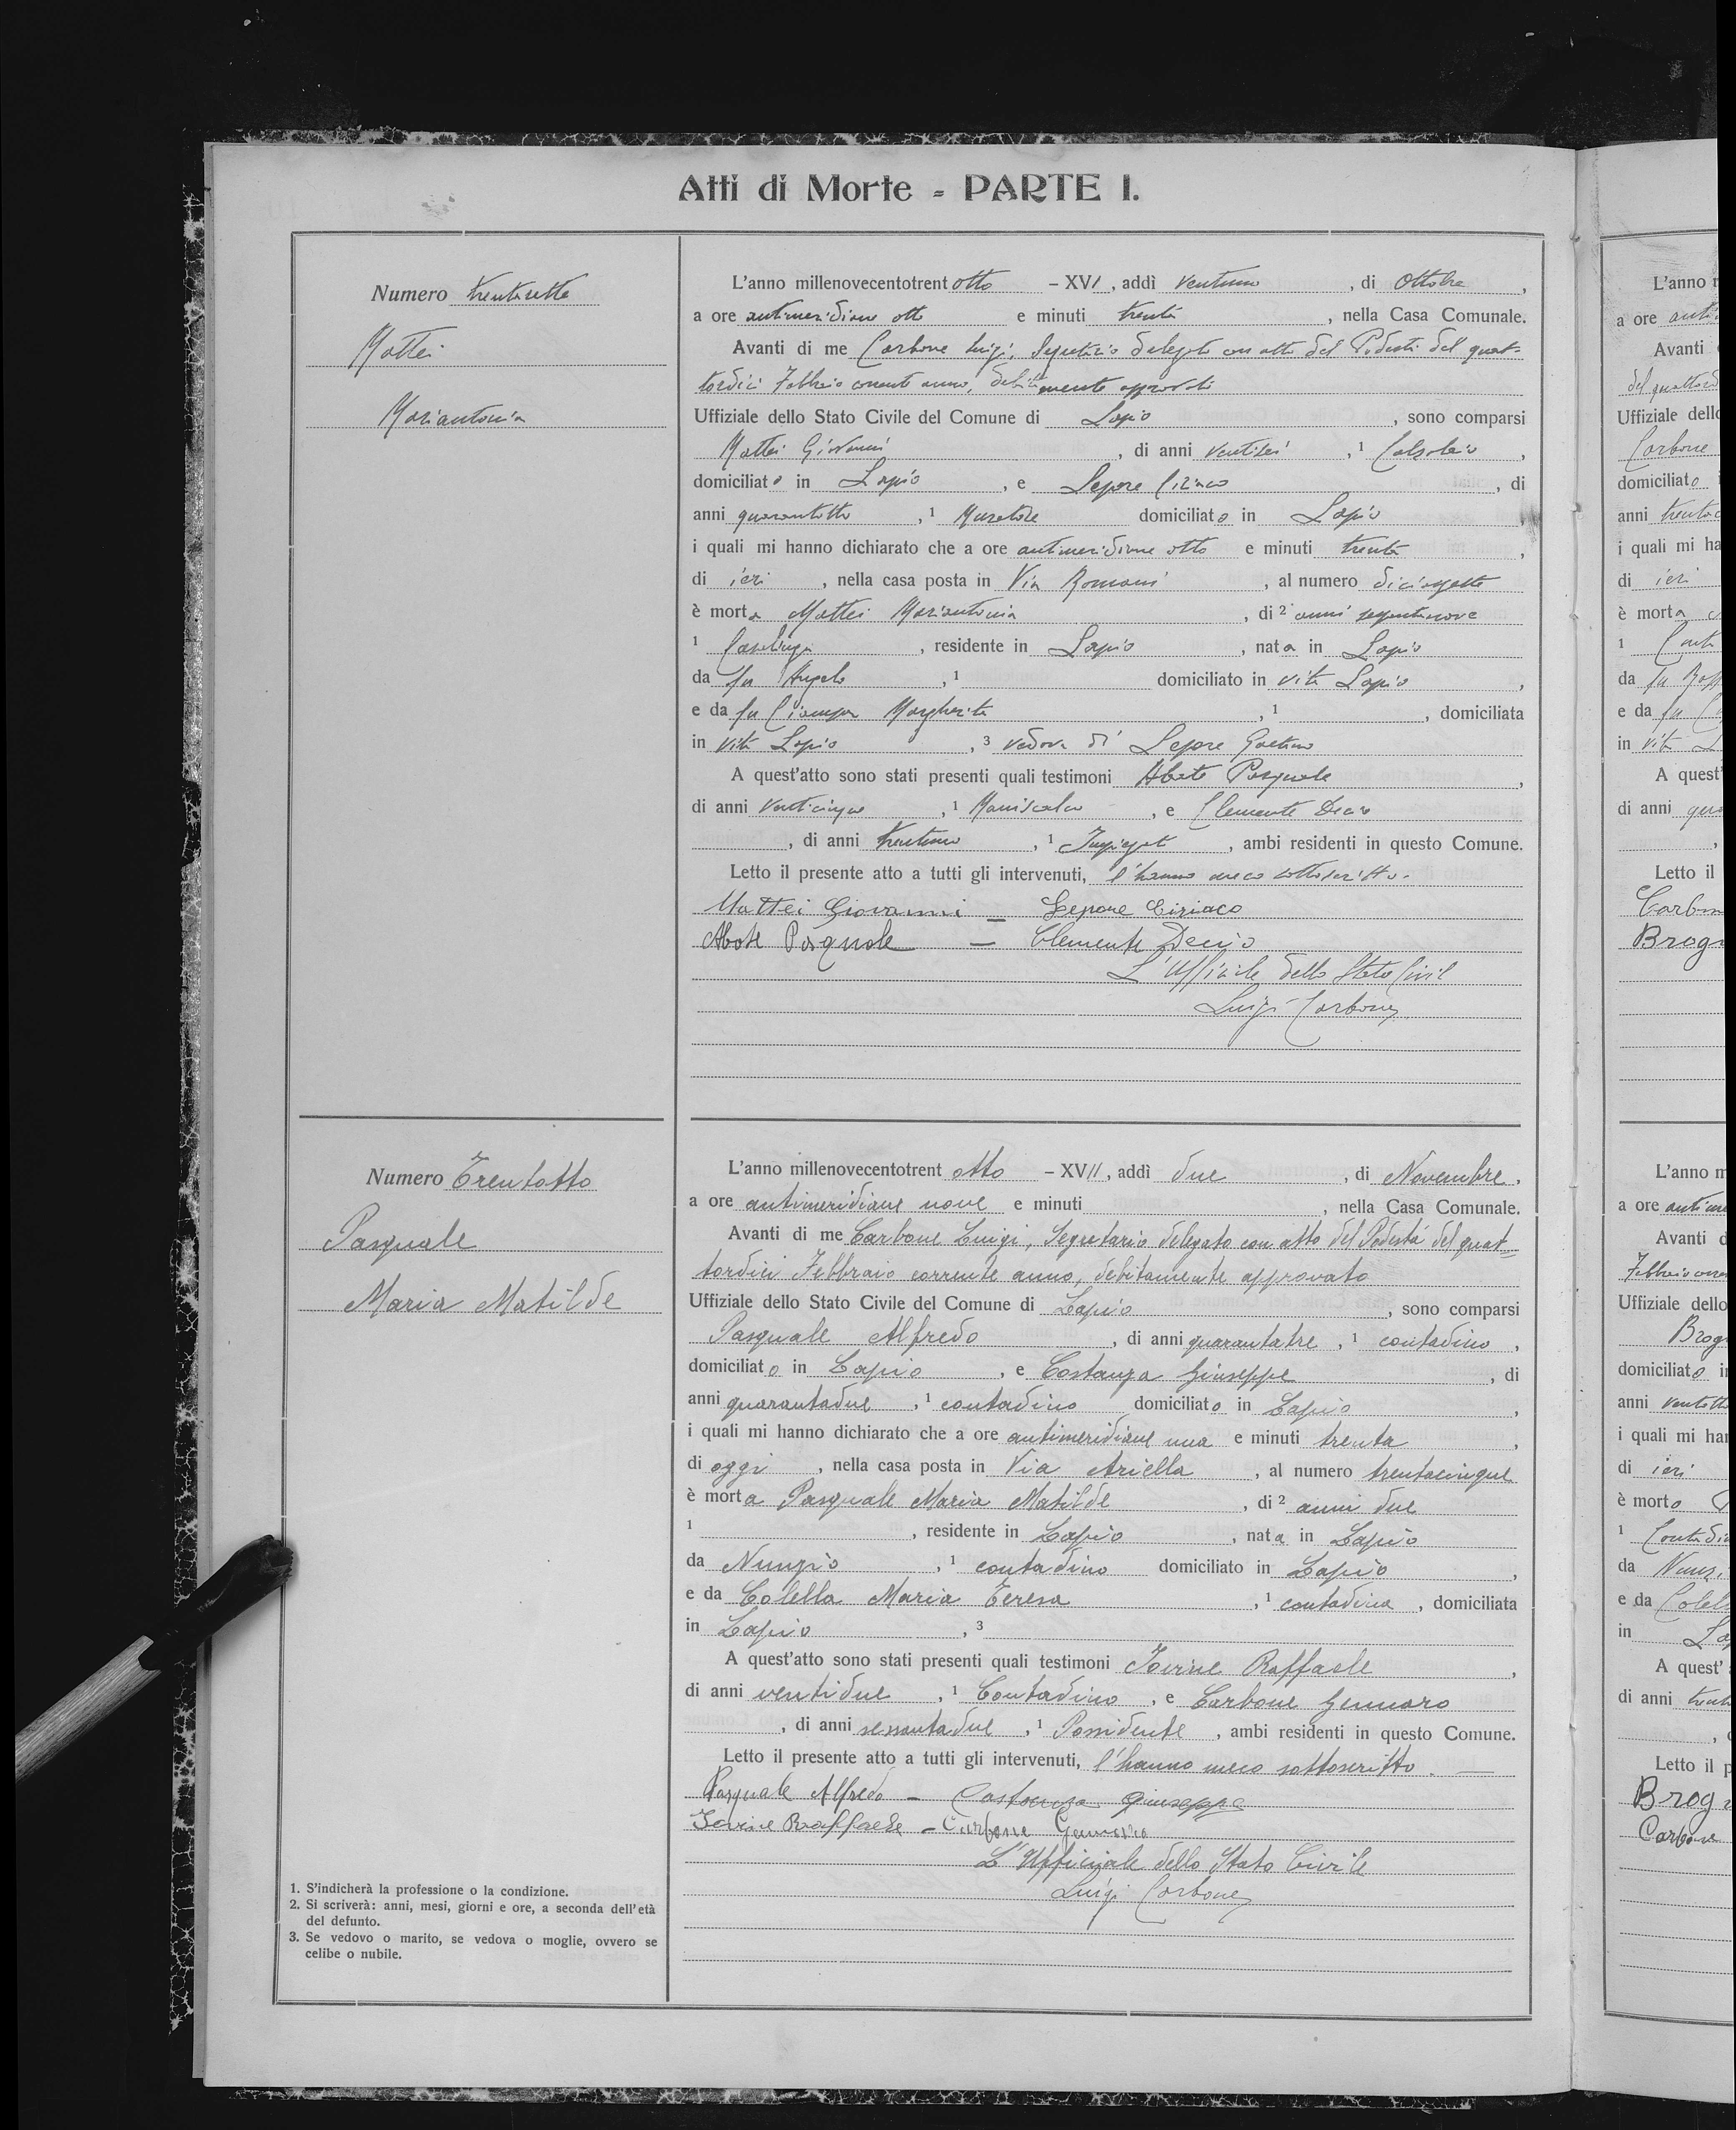 Atti di Morte - PARTE I.
Numero trentasette
Mattei
Mariantonia
L'anno millenovecentotrent otto - XVI, addì ventuno, di Ottobre,
a ore antimeridiane otto e minuti trenta, nella Casa Comunale.
Avanti di me Carbone Luigi, Segretario delegato con atto del Podestà del quat-
tordici Febbraio corrente anno, debitamente approvato
Uffiziale dello Stato Civile del Comune di Lapio, sono comparsi
Mattei Giovanni, di anni ventisei, 1 Calzolaio,
domiciliato in Lapio, e Lepore Ciriaco, di
anni quarantotto, 1 Muratore domiciliato in Lapio,
i quali mi hanno dichiarato che a ore antimeridiane otto e minuti trenta,
di ieri, nella casa posta in Via Romani, al numero diciassette
è morta Mattei Mariantonia, di 2 anni
1 Casalinga, residente in Lapio, nata in Lapio
da fu Angelo, 1 domiciliato in vita Lapio,
e da fu Ciampa Margherita, 1, domiciliata
in vita Lapio, 3 vedova di Lepore Gaetano
A quest'atto sono stati presenti quali testimoni Abate Pasquale,
di anni venticinque, 1 Maniscalco, e Clemente Decio
, di anni trentuno, 1 Impiegato, ambi residenti in questo Comune.
Letto il presente atto a tutti gli intervenuti, l'hanno meco sottoscritto.
Mattei Giovanni - Lepore Ciriaco
Abate Pasquale - Clemente Decio
L'Ufficiale dello Stato Civile
Luigi Carbone
Numero Trentotto
Pasquale
Maria Matilde
L'anno millenovecentotrent otto - XVII, addì due, di Novembre,
a ore antimeridiane nove e minuti, nella Casa Comunale.
Avanti di me Carbone Luigi, Segretario delegato con atto del Podestà del quat=
tordici Febbraio corrente anno, debitamente approvato
Uffiziale dello Stato Civile del Comune di Lapio, sono comparsi
Pasquale Alfredo, di anni quarantatre, 1 contadino,
domiciliato in Lapio, e Costanza Giuseppe, di
anni quarantadue, 1 contadino domiciliato in Lapio,
i quali mi hanno dichiarato che a ore antimeridiane una e minuti trenta,
di oggi, nella casa posta in Via Ariella, al numero trentacinque
è morta Pasquale Maria Matilde, di 2 anni due
1, residente in Lapio, nata in Lapio
da Nunzio, 1 contadino domiciliato in Lapio,
e da Colella Maria Teresa, 1 contadina, domiciliata
in Lapio, 3
A quest'atto sono stati presenti quali testimoni Iovine Raffaele,
di anni ventidue, 1 Contadino, e Carbone Gennaro
, di anni sessantadue, 1 Possidente, ambi residenti in questo Comune.
Letto il presente atto a tutti gli intervenuti, l'hanno meco sottoscritto.
Pasquale Alfredo - Costanza Giuseppe
Iovine Raffaele - Carbone Gennaro
L'Ufficiale dello Stato Civile
Luigi Carbone
1. S'indicherà la professione o la condizione.
2. Si scriverà: anni, mesi, giorni e ore, a seconda dell'età
del defunto.
3. Se vedovo o marito, se vedova o moglie, ovvero se
celibe o nubile.